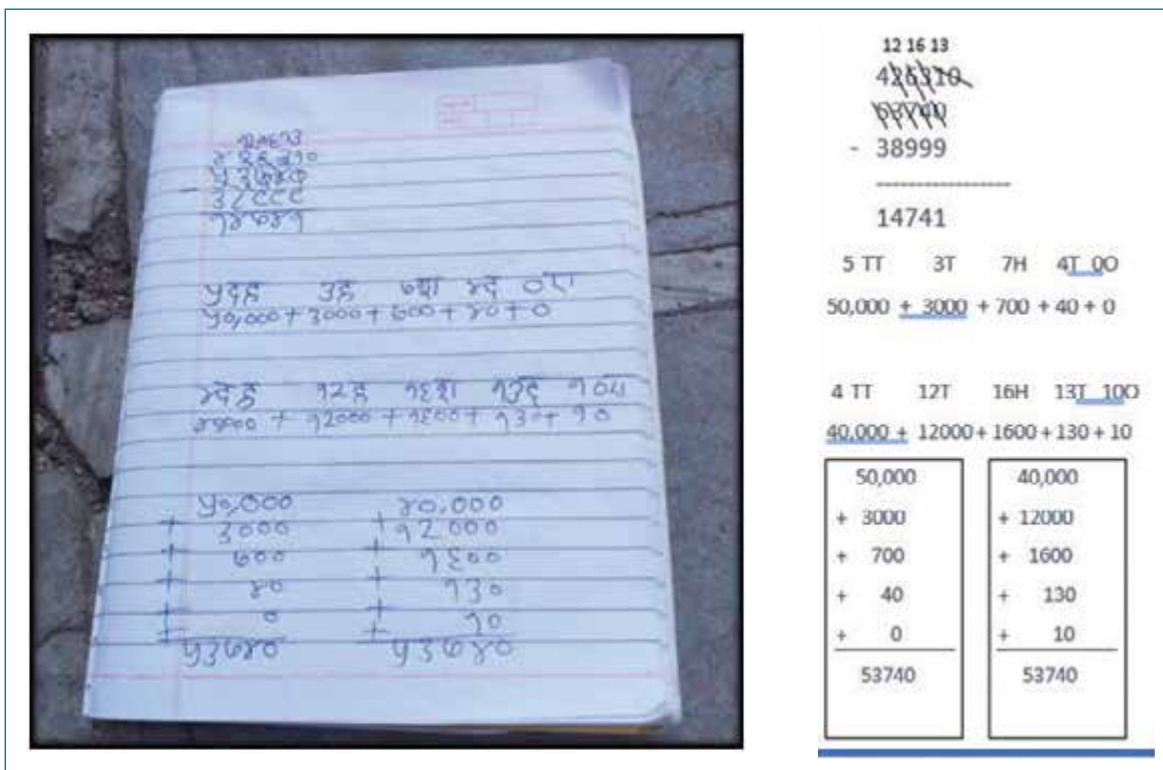 ५३७४०
- ३८९९९
१४७४१
५दह ३ह ७श ४द
५०,००० + ३००० + ७०० + ४० + ०
४दह १२ह १६श १३द
४०००० + १२००० + १६०० + १३० + १०
५०,०००
+ ३०००
+ ७००
+ ४०
+ ०
५३७४०
४०,०००
+ १२०००
+ १६००
+ १३०
+ १०
५३७४०
12 16 13
426310
53740
- 38999
------------------
14741
5 TT 3T 7H 4T 0O
50,000 + 3000 + 700 + 40 + 0
4 TT 12T 16H 13T 10O
40,000 + 12000 + 1600 + 130 + 10
50,000
+ 3000
+ 700
+ 40
+ 0
53740
40,000
+ 12000
+ 1600
+ 130
+ 10
53740